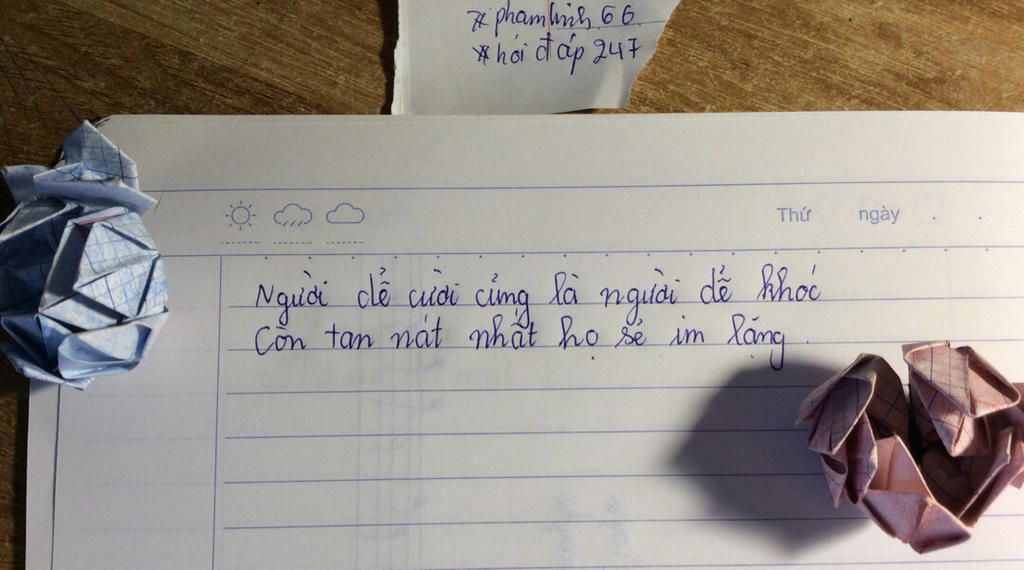 * phamlinh 66
* hỏi đáp 247
Thứ ngày . .
Người dể cười củng là người dể khóc
Còn tan nát nhất họ sẻ im lặng.